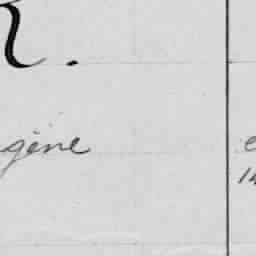 R.
gène e
14